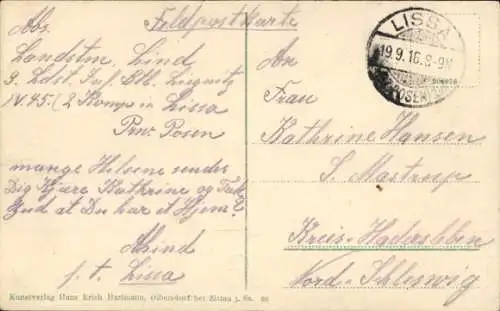 Feldpostkarte
Abs.
Landstm. Lind
9. Ldst. Inf. Btl. Liegnitz
(2 Komp in Lissa
Prov. Posen
mange Hilsene sender
Dig Kjære Kathrine og Tak
Gud at Du har et Hjem
Lind
p. t. Lissa
An
Frau
Kathrine Hansen
S. Mastrup
Kreis Hadersleben
Nord-Schleswig
LISSA
19.9.16.8-9
POSEN
Kunstverlag Hans Erich Hartmann, Olbersdorf bei Zittau i. Sa.